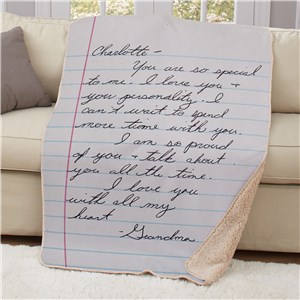 Charlotte -
You are so special
to me. I love you +
your personality. I
can't wait to spend
more time with you.
I am so proud
of you + talk about
you all the time.
I love you
with all my
heart.
-Grandma